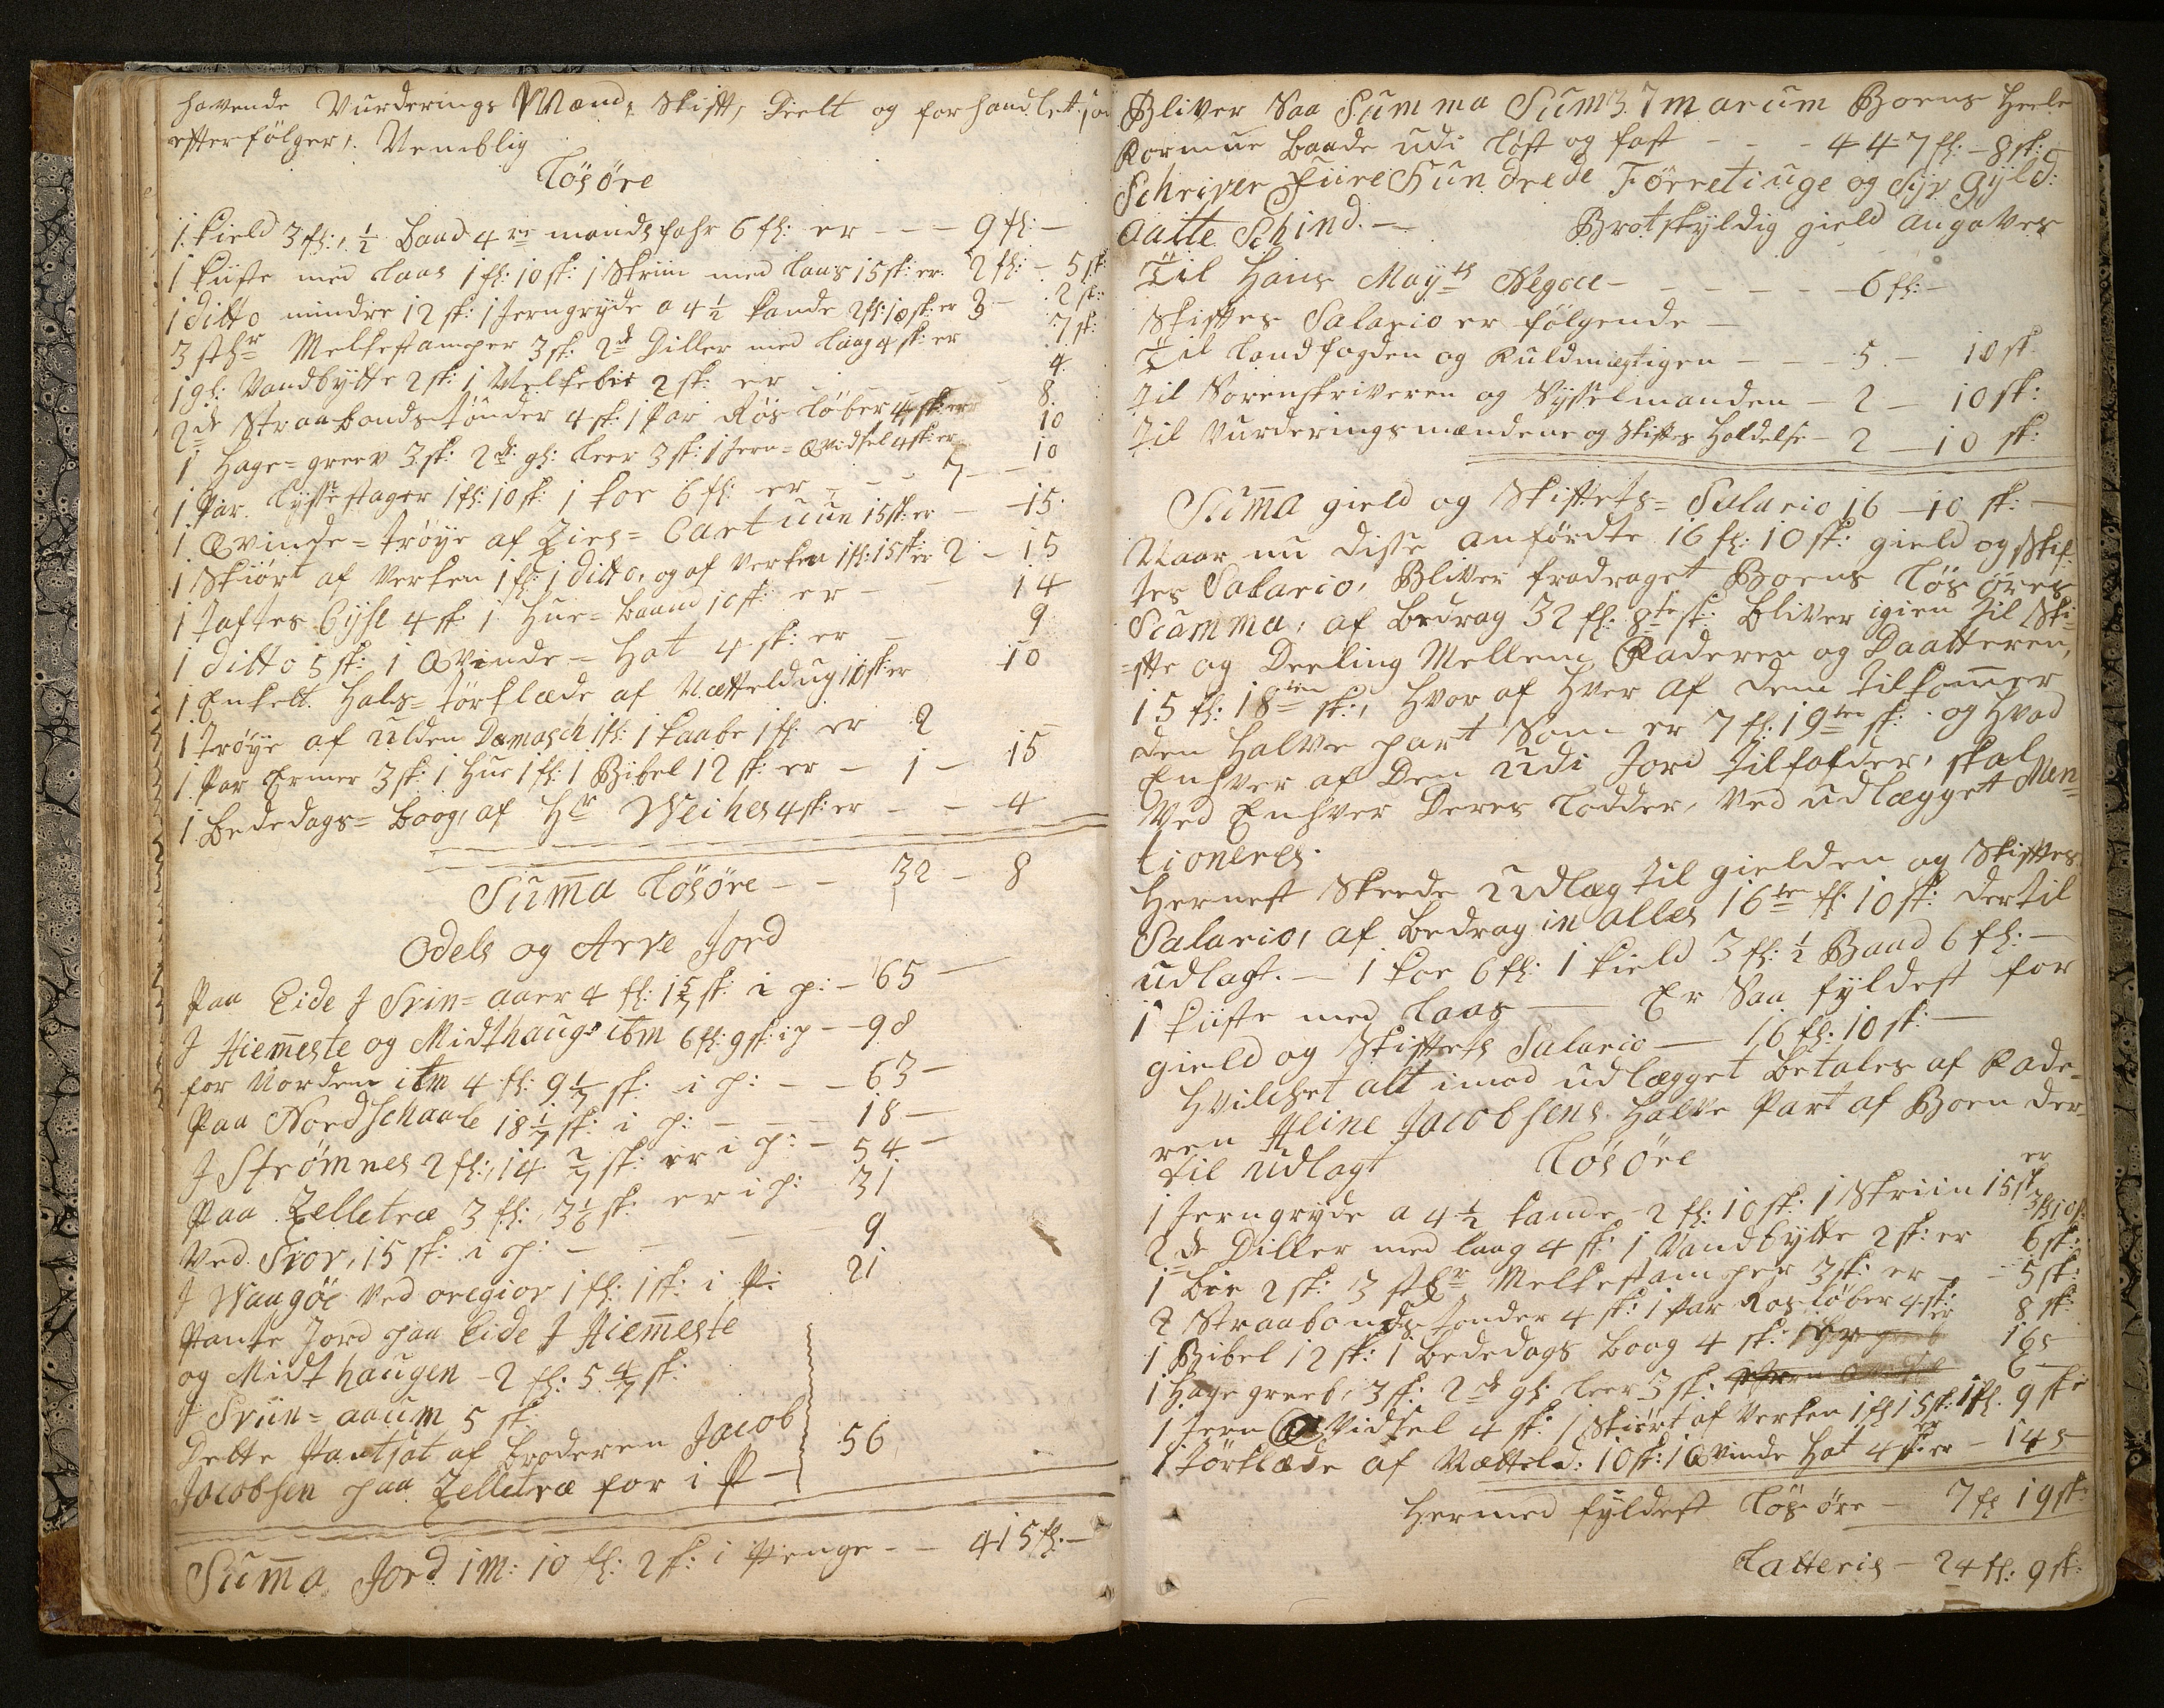 havende Vurderings Mænd, Skift, Deelt og forhandlet, som
efterfölger, Nemblig
Lösöre
1. kield 3 fl:, ½ baad 4re mands fahr 6 fl: er - - - 9 fl: -
1 kiste med laas 1 fl: 10 sk: 1 Skriin med laas 15 sk: er 2 fl: - 5 sk:
1 ditto mindre 12 sk: 1 Jerngryde a 4½ kande 2 fl: 10 sk: er 3 - 2 sk:
3 stkr Melkestamper 3 sk: 2de Diller med laag 4 sk: er 7 sk:
1 gl: Vandbytte 2 sk: 1 Melkebie 2 sk: er - - - 4
2de Straabonds Tönder 4 sk: 1 Par Rös löber 4 sk: er 8.
1 Hage=greev 3 sk: 2de gl: leer 3 sk: 1 Jern=Qvidsel 4 sk: er 10
1 Par Lysestager 1 fl: 10 sk: 1 koe 6 fl: er - - - 7 - 10
1 Qvinde=tröye af Zies=Cartuun 15 sk: er - - 15.
1 Skiört af Verken 1 fl: 1 ditto, og af Verken 1 fl: 15 sk: er 2 - 15
1 Taftes Cyse 4 sk: 1 Hue=baand 10 sk: er - - 14
1 ditto 5 sk: 1 Qvinde=Hat 4 sk: er - 9
1 Enkelt Hals=törklæde af Nætteldug 10 sk: er 10
1 Tröye af ulden Damasch 1 fl: 1 kaabe 1 fl: er 2
1 Par Ermer 3 sk: 1 Hue 1 fl: 1 Bibel 12 sk: er - 1 - 15
1 Bededags=Boog, af Hr Weihes 4 sk: er - - 4
Sum̄a Lösöre - - 32 - 8
Odels og Arve Jord
Paa Eide J Srin=aaer 4 fl: sk: i p: - 65 -
J Hiem̄este og Midthaugs itm 6 fl: 9 sk: i p - - 98
for Norden itm 4 fl: 9 1/7 sk: i p: - - 63 -
Paa Nordschaale 18 1/7 sk: i p: - - - 18 -
J Strömnes 2 fl:, 14 2/7 sk: er i p: - 54 -
Paa Zelletræ 3 fl:, 3 1/6 sk: er i p: 31
Ved Sior, 15 sk: i p: - - - 9
J Waagöe ved oregior 1 fl: 1 sk: i P: 21
Pante Jord paa Eide J Hiem̄este
og Midthaugen - 2 fl: 5 4/7 sk:
J Sriin=aaum 5 sk:
Dette Pantsat af broderen Jacob
Jacobsen paa Zelletræ for i P - 56
Sum̄a Jord 1 m: 10 fl: 2 sk: i Penge - - 415 fl: -
Bliver Saa Summa Summarum Boens Heele
Formue baade udi löst og fast - - - 447 fl: - 8 sk: -
Schriver Fiire Hundrede Förretiuge og Syv Gyld:
Aatte Schind. - Brotskyldig gield angaves
Til Hans Mayts Negoce - - - - - - 6 fl: -
Skiftes Salario er fölgende -
Til landfogden og Fuldmægtigen - - - 5. - 10 sk.
Til Sorenskriveren og Sysselmanden - 2 - 10 sk:
Til Vurderingsmændene og Skiftes Holdelse - 2 - 10 sk:
Sum̄a gield og Skiftets=Salario 16 - 10 sk: -
Naar nu disse anfördte 16 fl: 10 sk: gield og Skif-
tes Salario, Bliver fradraget Boens Lösöres
Summa, af bedrag 32 fl: 8te sk: bliver igien til Ski-
=fte og Deeling Mellem Faderen og Daatteren,
15 fl: 18ten sk:, Hvor af Hver af dem tilkom̄er
den Halve part som er 7 fl: 19ten sk: og Hvad
Enhver af Dem udi Jord tilfalder, skal
Ved Enhver Deres lodder, ved udlægget Men=
tioneres.
Hernest Skeede udlæg til gielden og Skiftes
Salario, af bedrag in alles 16ten fl: 10 sk: dertil
udlagt. - 1 koe 6 fl: 1 kield 3 fl: ½ Baad 6 fl: -
1 kiste med laas - Er Saa fyldest for
gield og Skiftets Salario - 16 fl: 10 sk: -
Hvilchet alt imod udlægget betales af Fade-
ren Heine Jacobsens Halve Part af Boen der-
til udlagt Lösöre er
1 Jerngryde a 4½ kande - 2 fl: 10 sk: 1 Skriin 15 sk 3 fl: 10 s:
2de Diller med laag 4 sk: 1 Vandbytte 2 sk: er 6 sk:
1 bie 2 sk: 3 stkr Melkestamper 3 sk: er - 5 sk:
2 Straabonds Tönder 4 sk: 1 Par Rös löber 4 sk: er 8 sk:
1 Bibel 12 sk: 1 bededags boog 4 sk: 16 s
1 Hage greeb, 3 sk: 2de gl: leer 3 sk: 6 -
1 Jern Qvidsel 4 sk: 1 Skiört af Verken 1 fl 5 sk: er 1 fl. 9 sk:
1 törklæde af Nætteld: 10 sk: 1 Qvinde Hat 4 sk: er - 14 s
Hermed fyldest Lös öre - 7 fl 19 sk:
Latteris - 24 fl: 9 sk: